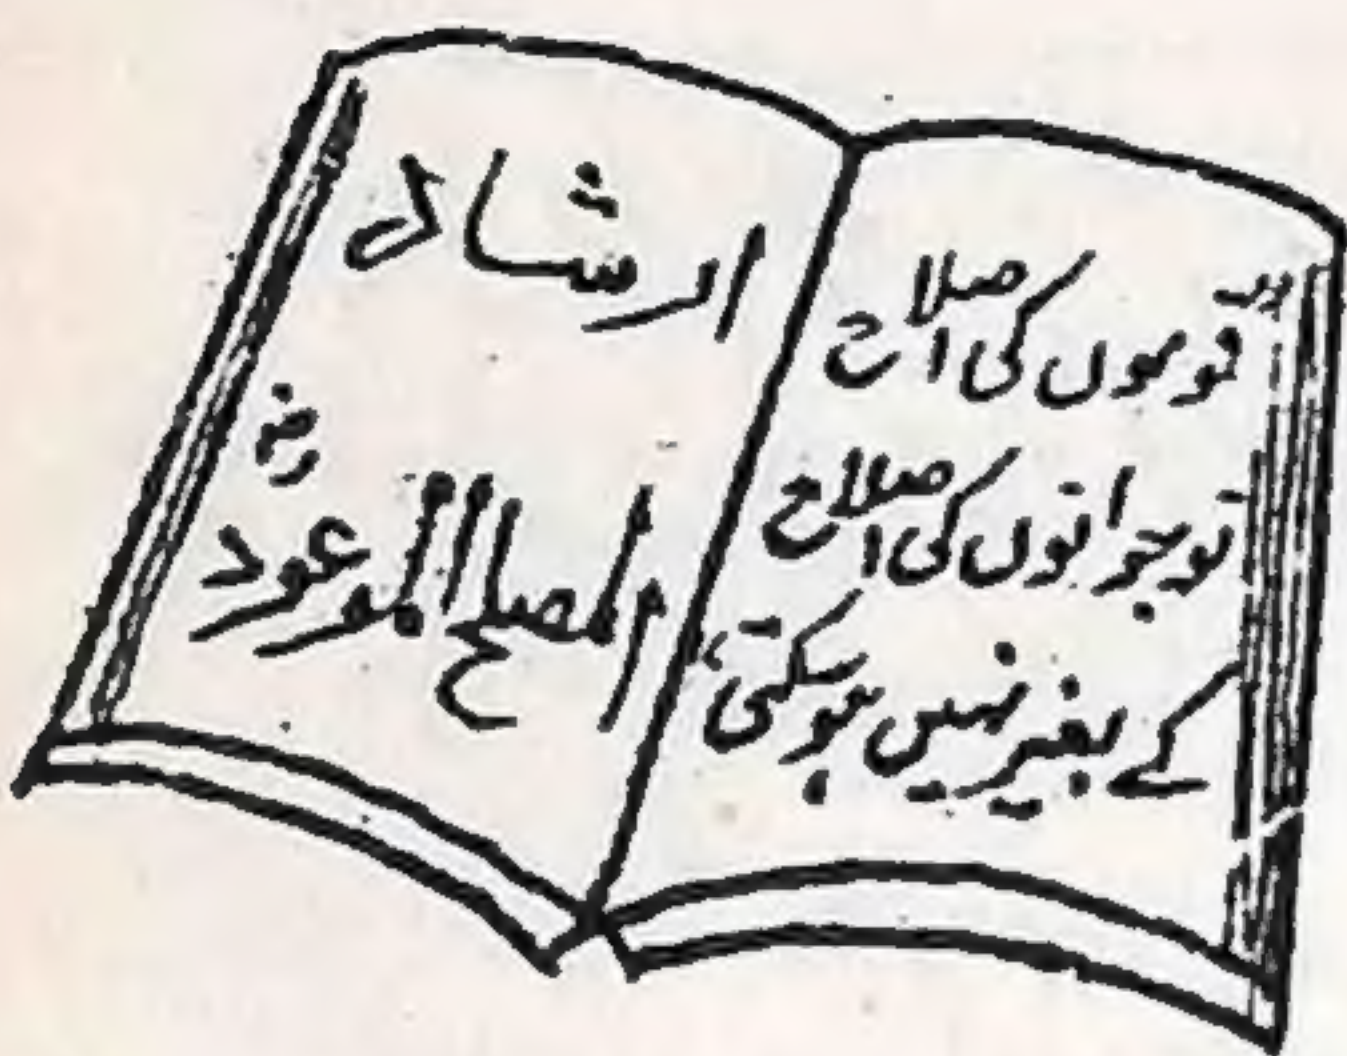 "قوموں کی اصلاح
نوجوانوں کی اصلاح
کے بغیر نہیں ہو سکتی"
ارشاد
المصلح الموعود رضؓ